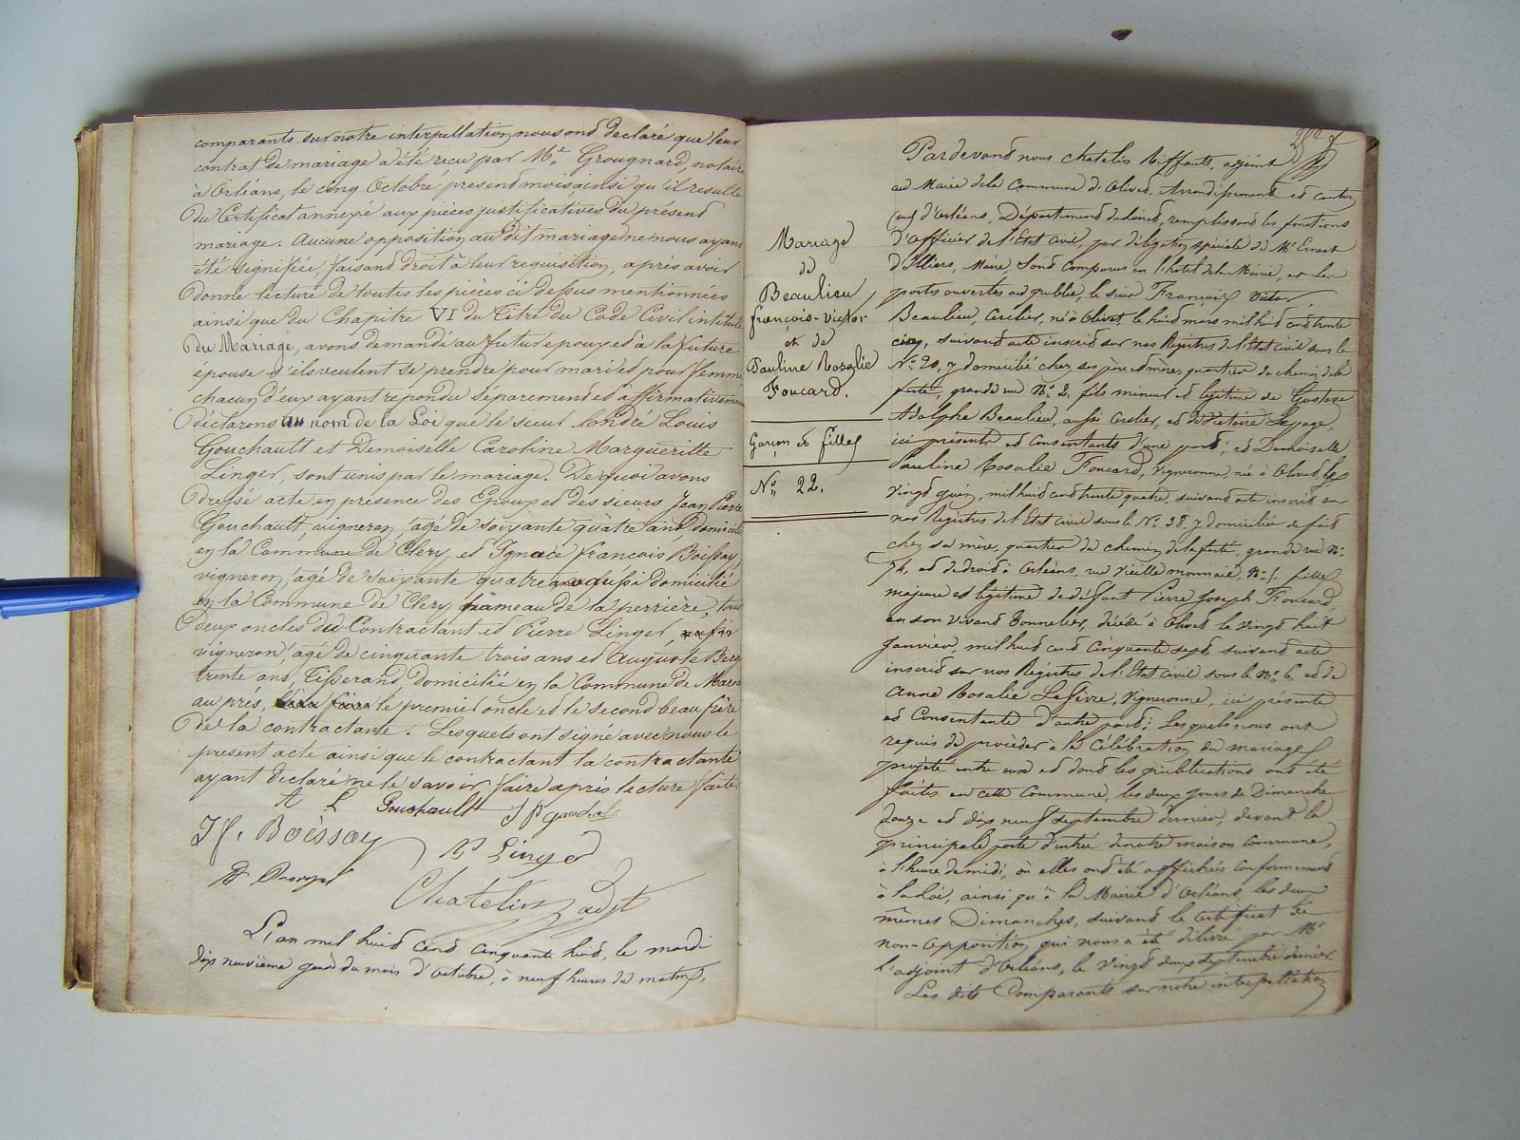 comparants sur notre interpellation nous ond declaré que leur
contrat de mariage a été recu par Me Grougnard, notaire
à Orléans, le cinq Octobre présend mois ainsi qu'il resulte
du Certificat annexé aux pièces justificatives du présend
mariage. Aucune opposition au dit mariage ne nous ayant
été signifiée, faisand droit à leur requisition, après avoir
donné lecture de toutes les pièces ci dessus mentionnées
ainsi que du Chapitre VI du Titre du Code Civil intitulé
du Mariage, avons demandé au futur époux ed à la future
épouse s'ils veulent se prendre pour mari ed pour femme
chacun d'eux ayant repondu séparemend ed affirmativemend
déclarons au nom de la Loi que le sieur Louis
Gouchault et Demoiselle Caroline Margueritte
Linger, sont unis par le mariage. De quoi avons
dressé acte en présence des Epoux ed des sieurs Jean Pierre
Gouchault, vigneron, agé de soixante quatre ans, domicilié
en la Commune de Clery, ed Ignace françois Boissay
vigneron, agé de soixante quatre ans aussi domicilié
en la Commune de Clery hameau de la perrière, tous
deux oncles du Contractant ed Pierre Linger,
vigneron, agé de cinquante trois ans ed Auguste
trente ans, Tisserand domicilié en la Commune de Mareau
au prés, le premier oncle ed le second beau frère
de la contractante. Lesquels ont signé avec nous le
present acte ainsi que le contractant la contractante
ayant declaré ne le savoir faire après lecture faite
A L Gouchault J P Gouchault
J f. Boissay P Linger
Chatelin adjt
L'an mil huid cend cinquante huid, le mardi
dix neuvième jour du mois d'Octobre, à neuf heures du matin,
Mariage
de
Beaulieu,
françois-Victor
et de
Pauline Rosalie
Foucard.
Garçon & fille
No 22.
Pardevand nous Chatelin Riffault, adjoint
au Maire de la Commune d'Olived, Arrondissemend ed canton
sud d'orléans, Départemend du Loired, remplissand les fonctions
d'officier de l'Etat civil, par délégation spéciale de Mr Ernest
d'Illiers, Maire, Sond Comparus en l'hotel de la Mairie, et les
portes ouvertes au public, le sieur François Victor
Beaulieu, Cerclier, né à Olivet, le huid mars mil huid cend trente
cinq, suivand acte inscrid sur nos Registres de l'Etat civil sous le
No 20, y domicilié chez ses père ed mère quartier du chemin de la
ferté, grande rue No 2, fils mineur ed légitime de Gustave
Adolphe Beaulieu, aussi Cerclier, ed de Victoire Lepage,
ici présents ed Consentants d'une pard; ed Demoiselle
Pauline Rosalie Foucard, Vigneronne, née à Olived le
Vingd juin, mil huid cend trente quatre, suivand acte inscrid sur
nos Registres de l'Etat civil sous le No 38, y domiciliée de faid
chez sa mère, quartier du chemin de la ferté, grande rue No
74, ed de droid à Orléans, rue Vieille monnaie, No 1. fille
majeure ed légitime de défunt Pierre Joseph Foucard,
en son vivand Tonnelier, décédé à Olived le Vingd huit
Janvier, mil huid cend Cinquante sept suivand acte
inscrid sur nos Registres de l'Etat civil sous le No 6, ed de
Anne Rosalie Lefèvre, Vigneronne, ici présente
ed Consentante d'autre pard; Lesquels nous ont
requis de procéder à la Célébration du mariage
projeté entre eux ed dond les publications ont été
faites en cette Commune, les deux jours de Dimanche
douze ed dix neuf septembre dernier, devant la
principale porte d'entrée de notre maison Commune,
à l'heure de midi, où elles ond été affichées conformémend
à la Loi, ainsi qu'à la Mairie d'Orléans, les deux
mêmes Dimanches, suivand le certificat de
non-opposition qui nous a été délivré par Mr
l'adjoint d'Orléans, le vingd deux septembre dernier.
Les dits Comparants sur notre interpellation